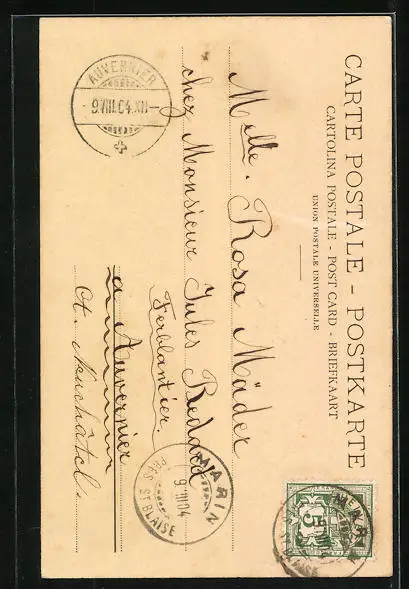 CARTE POSTALE - POSTKARTE
CARTOLINA POSTALE - POST CARD - BRIEFKAART
UNION POSTALE UNIVERSELLE
Melle. Rosa Mäder
chez Monsieur Jules Redard
Ferblantier
a Auvernier
Ct. Neuchâtel.
AUVERNIER
9.VIII.04.XII
MARIN
9 VIII 04
PRÈS ST BLAISE
5